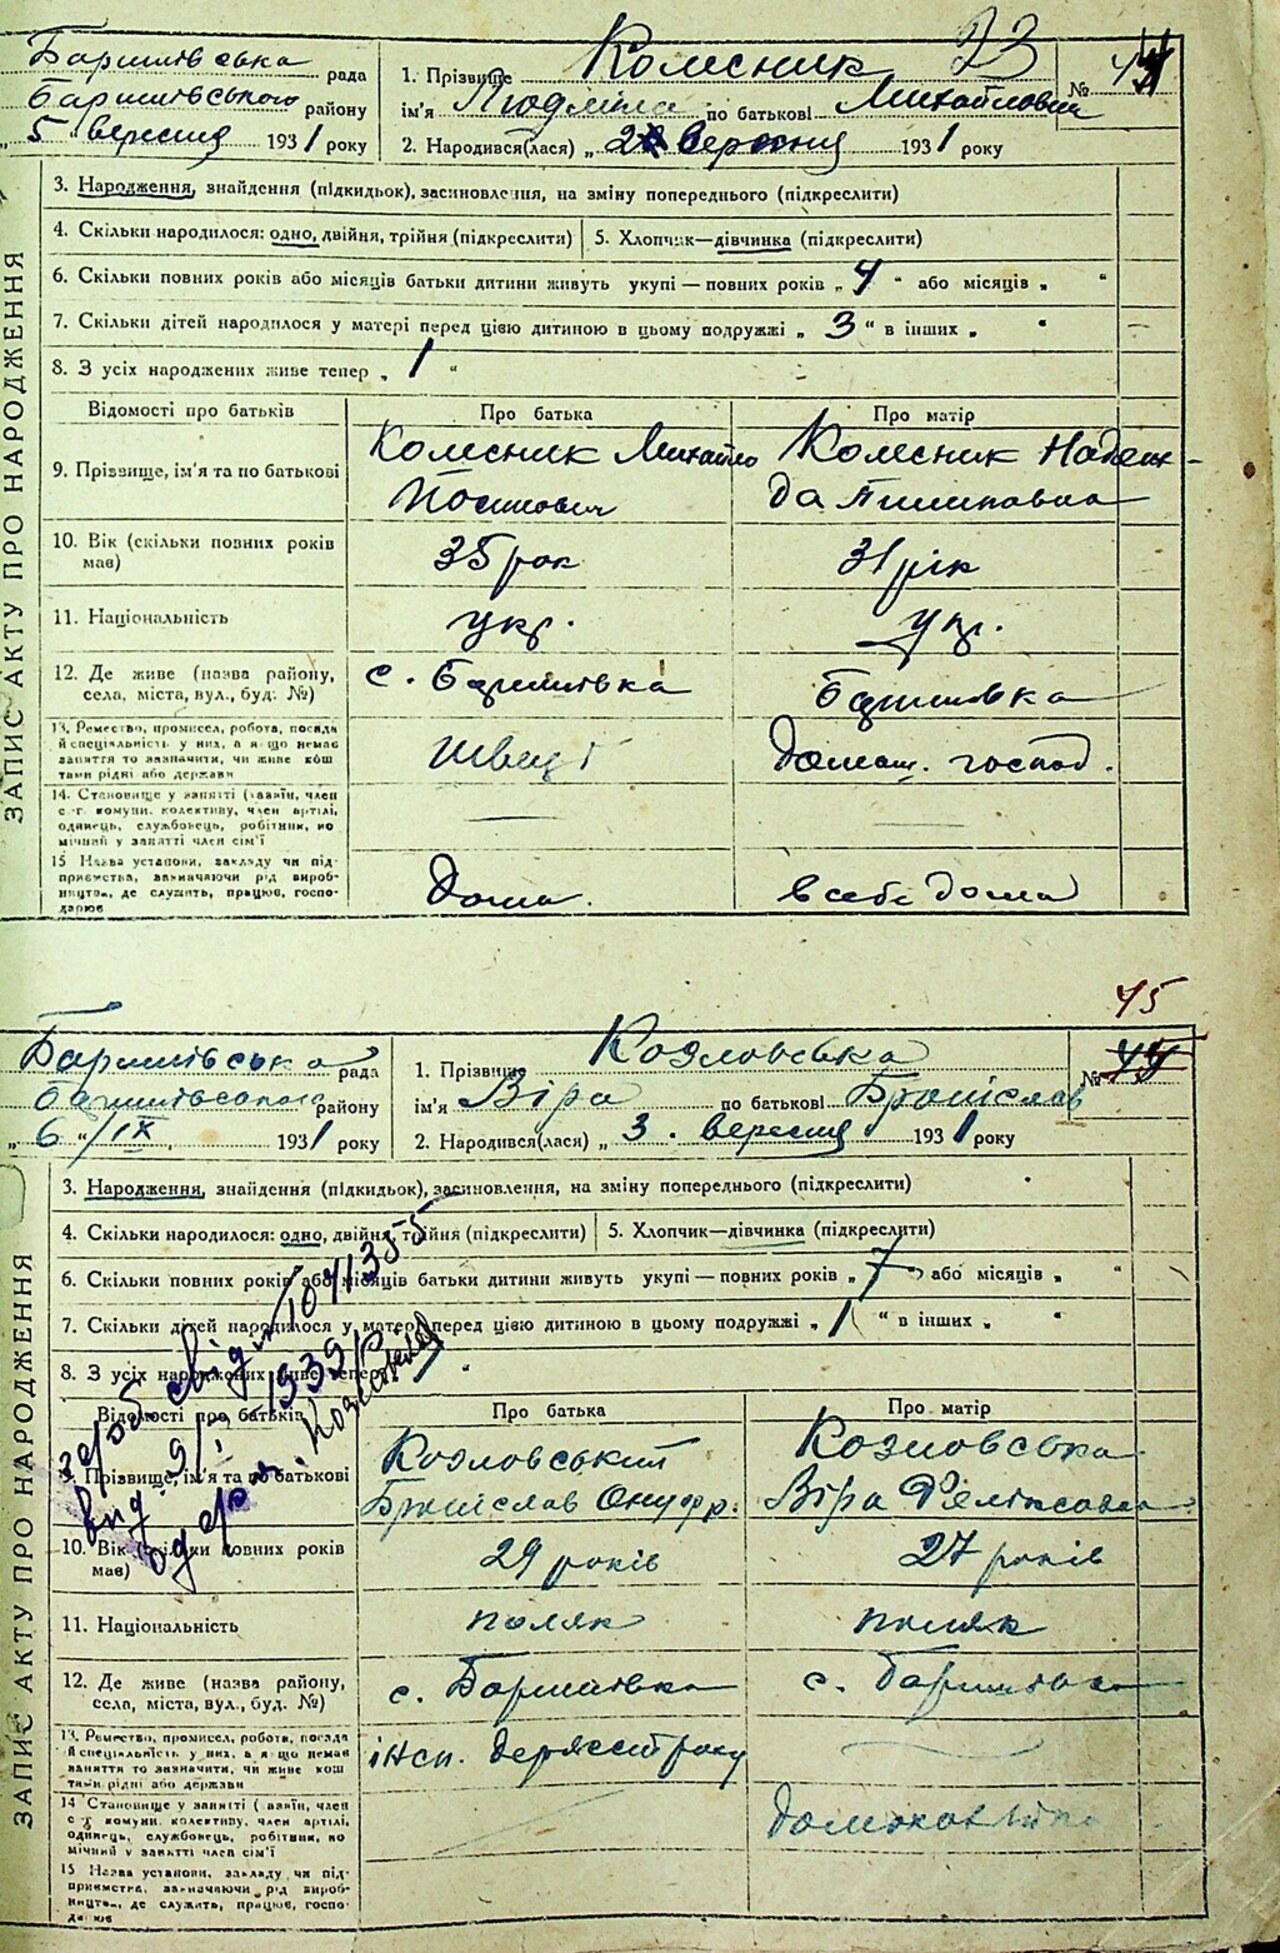 73
Баришівська рада
Баришівського району
„5" вересня 1931 року
1. Прізвище Колесник № 44
ім'я Людміла по батькові Михайловна
2. Народився(лася) „2 вересня 1931 року
ЗАПИС АКТУ ПРО НАРОДЖЕННЯ
3. Народження, знайдення (підкидьок), засиновлення, на зміну попереднього (підкреслити)
4. Скільки народилося: одно, двійня, трійня (підкреслити) 5. Хлопчик—дівчинка (підкреслити)
6. Скільки повних років або місяців батьки дитини живуть укупі — повних років „4" або місяців „ "
7. Скільки дітей народилося у матері перед цією дитиною в цьому подружжі „3" в інших „ "
8. З усіх народжених живе тепер „1"
Відомості про батьків Про батька Про матір
9. Прізвище, ім'я та по батькові
Колесник Михайло
Колесник Надеж-
да
10. Вік (скільки повних років
має)
35 рок 31 рік
11. Національність укр. укр.
12. Де живе (назва району,
села, міста, вул., буд. №)
с. Баришівка Баришівка
13. Ремество, промисел, робота, посада
й спеціяльність у них, а якщо немає
заняття то зазначити, чи живе кош
тами рідні або держави
швець домаш. господ.
14. Становище у занятті (хазяїн, член
с.-г. комуни, колективу, член артілі,
одинець, службовець, робітник, по
мічний у занятті член сім'ї
15 Назва установи, закладу чи під-
приємства, зазначаючи рід вироб-
ництва, де служить, працює, госпо-
дарює
дома. в себе дома
45
Баришівська рада
Баришівського району
„6"/IX 1931 року
1. Прізвище Козловська № 44
ім'я Віра по батькові Броніслав
2. Народився(лася) „3. вересня 1931 року
ЗАПИС АКТУ ПРО НАРОДЖЕННЯ
3. Народження, знайдення (підкидьок), засиновлення, на зміну попереднього (підкреслити)
4. Скільки народилося: одно, двійня, трійня (підкреслити) 5. Хлопчик—дівчинка (підкреслити)
6. Скільки повних років або місяців батьки дитини живуть укупі — повних років „7" або місяців „ "
7. Скільки дітей народилося у матері перед цією дитиною в цьому подружжі „1" в інших „ "
8. З усіх народжених живе тепер
свід. № 1041355
вид. 9/I 1939 р.
Відомості про батьків Про батька Про матір
9. Прізвище, ім'я та по батькові
Козловський
Броніслав Онуфр.
Козловська
Віра Феліксовна
10. Вік (скільки повних років
має)
29 років 27 років
11. Національність поляк поляк
12. Де живе (назва району,
села, міста, вул., буд. №)
с. Баришівка с. Баришівка
13. Ремество, промисел, робота, посада
й спеціяльність у них, а якщо немає
заняття то зазначити, чи живе кош
тами рідні або держави
інсп. держстраху
14 Становище у занятті (хазяїн, член
с.-г. комуни, колективу, член артілі,
одинець, службовець, робітник, по
мічний у занятті член сім'ї
15 Назва установи, закладу чи під-
приємства, зазначаючи рід вироб-
ництва, де служить, працює, госпо-
дарює